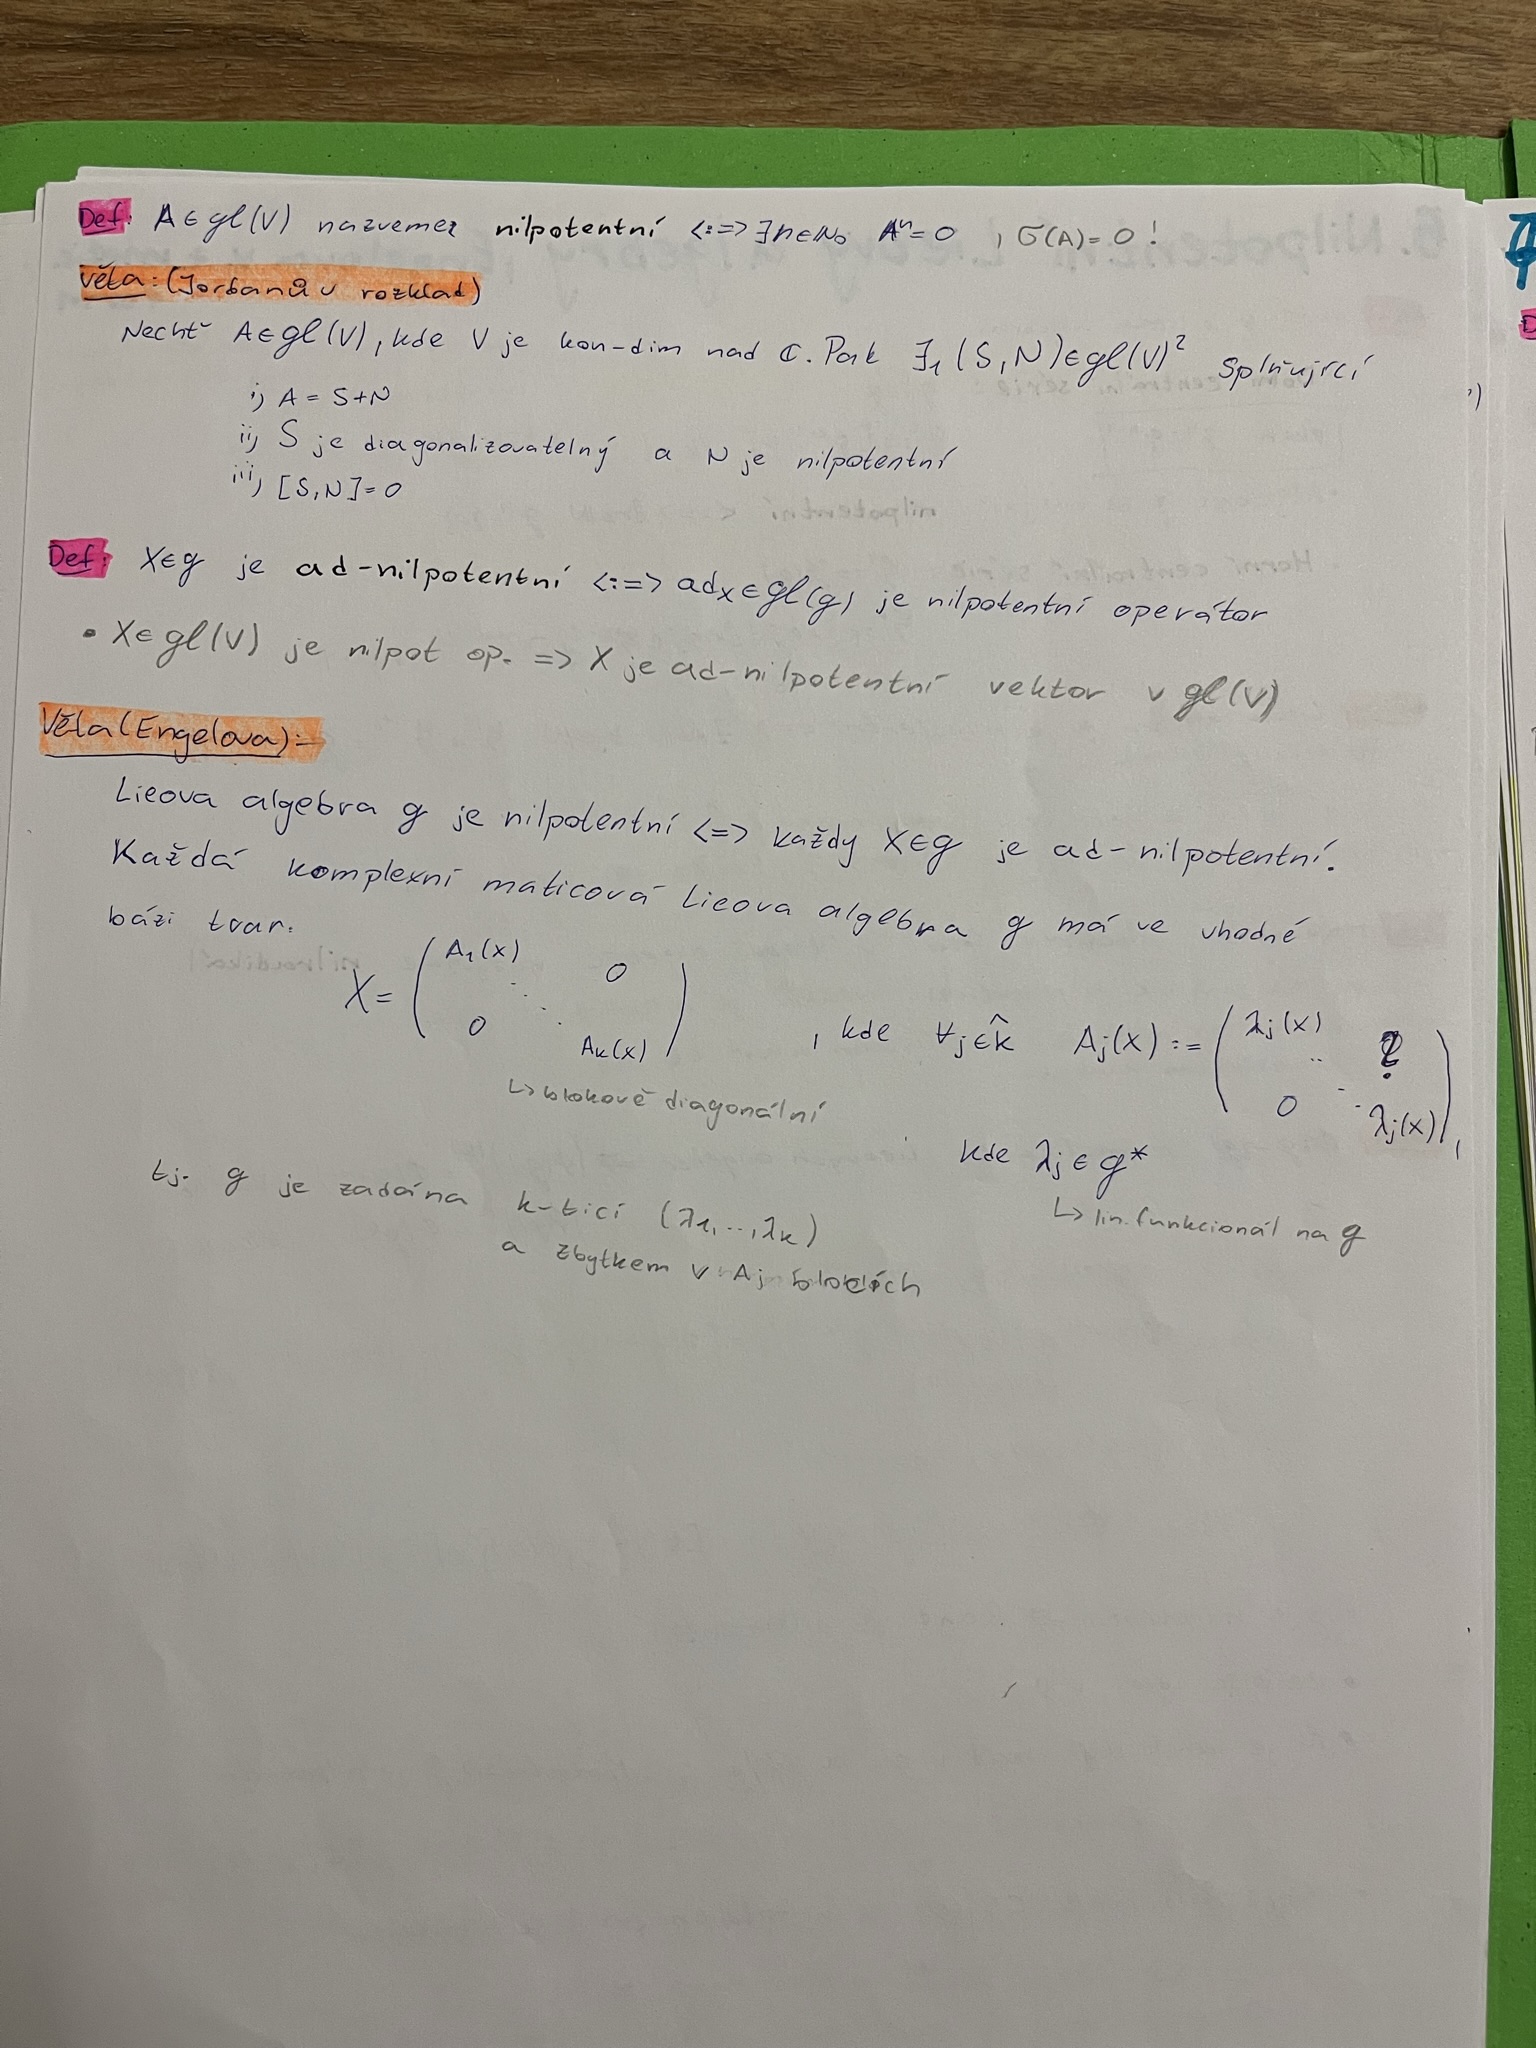 Def: A ∈ gl(V) nazvemez nilpotentní <:=> ∃n∈N₀ Aⁿ=0 , σ(A)=0 !
Věta: (Jordanův rozklad)
Nechť A∈gl(V), kde V je kon-dim nad ℂ. Pak ∃₁(S,N)∈gl(V)² splňující
i) A = S+N
ii) S je diagonalizovatelný a N je nilpotentní
iii) [S,N]=0
Def: X∈g je ad-nilpotentní <:=> ad_X ∈ gl(g) je nilpotentní operátor
• X∈gl(V) je nilpot op. => X je ad-nilpotentní vektor v gl(V)
Věta (Engelova):
Lieova algebra g je nilpotentní <=> každý X∈g je ad-nilpotentní.
Každá komplexní maticová Lieova algebra g má ve vhodné
bázi tvar:
X = ( A₁(x) ⋱ 0 0 Aₖ(x) ) , kde ∀j∈k̂ Aⱼ(x) := ( λⱼ(x) ⋱ ? 0 λⱼ(x) ) ,
↳ blokově diagonální
kde λⱼ ∈ g*
↳ lin. funkcionál na g
tj. g je zadána k-ticí (λ₁,..,λₖ)
a zbytkem v Aⱼ blocích